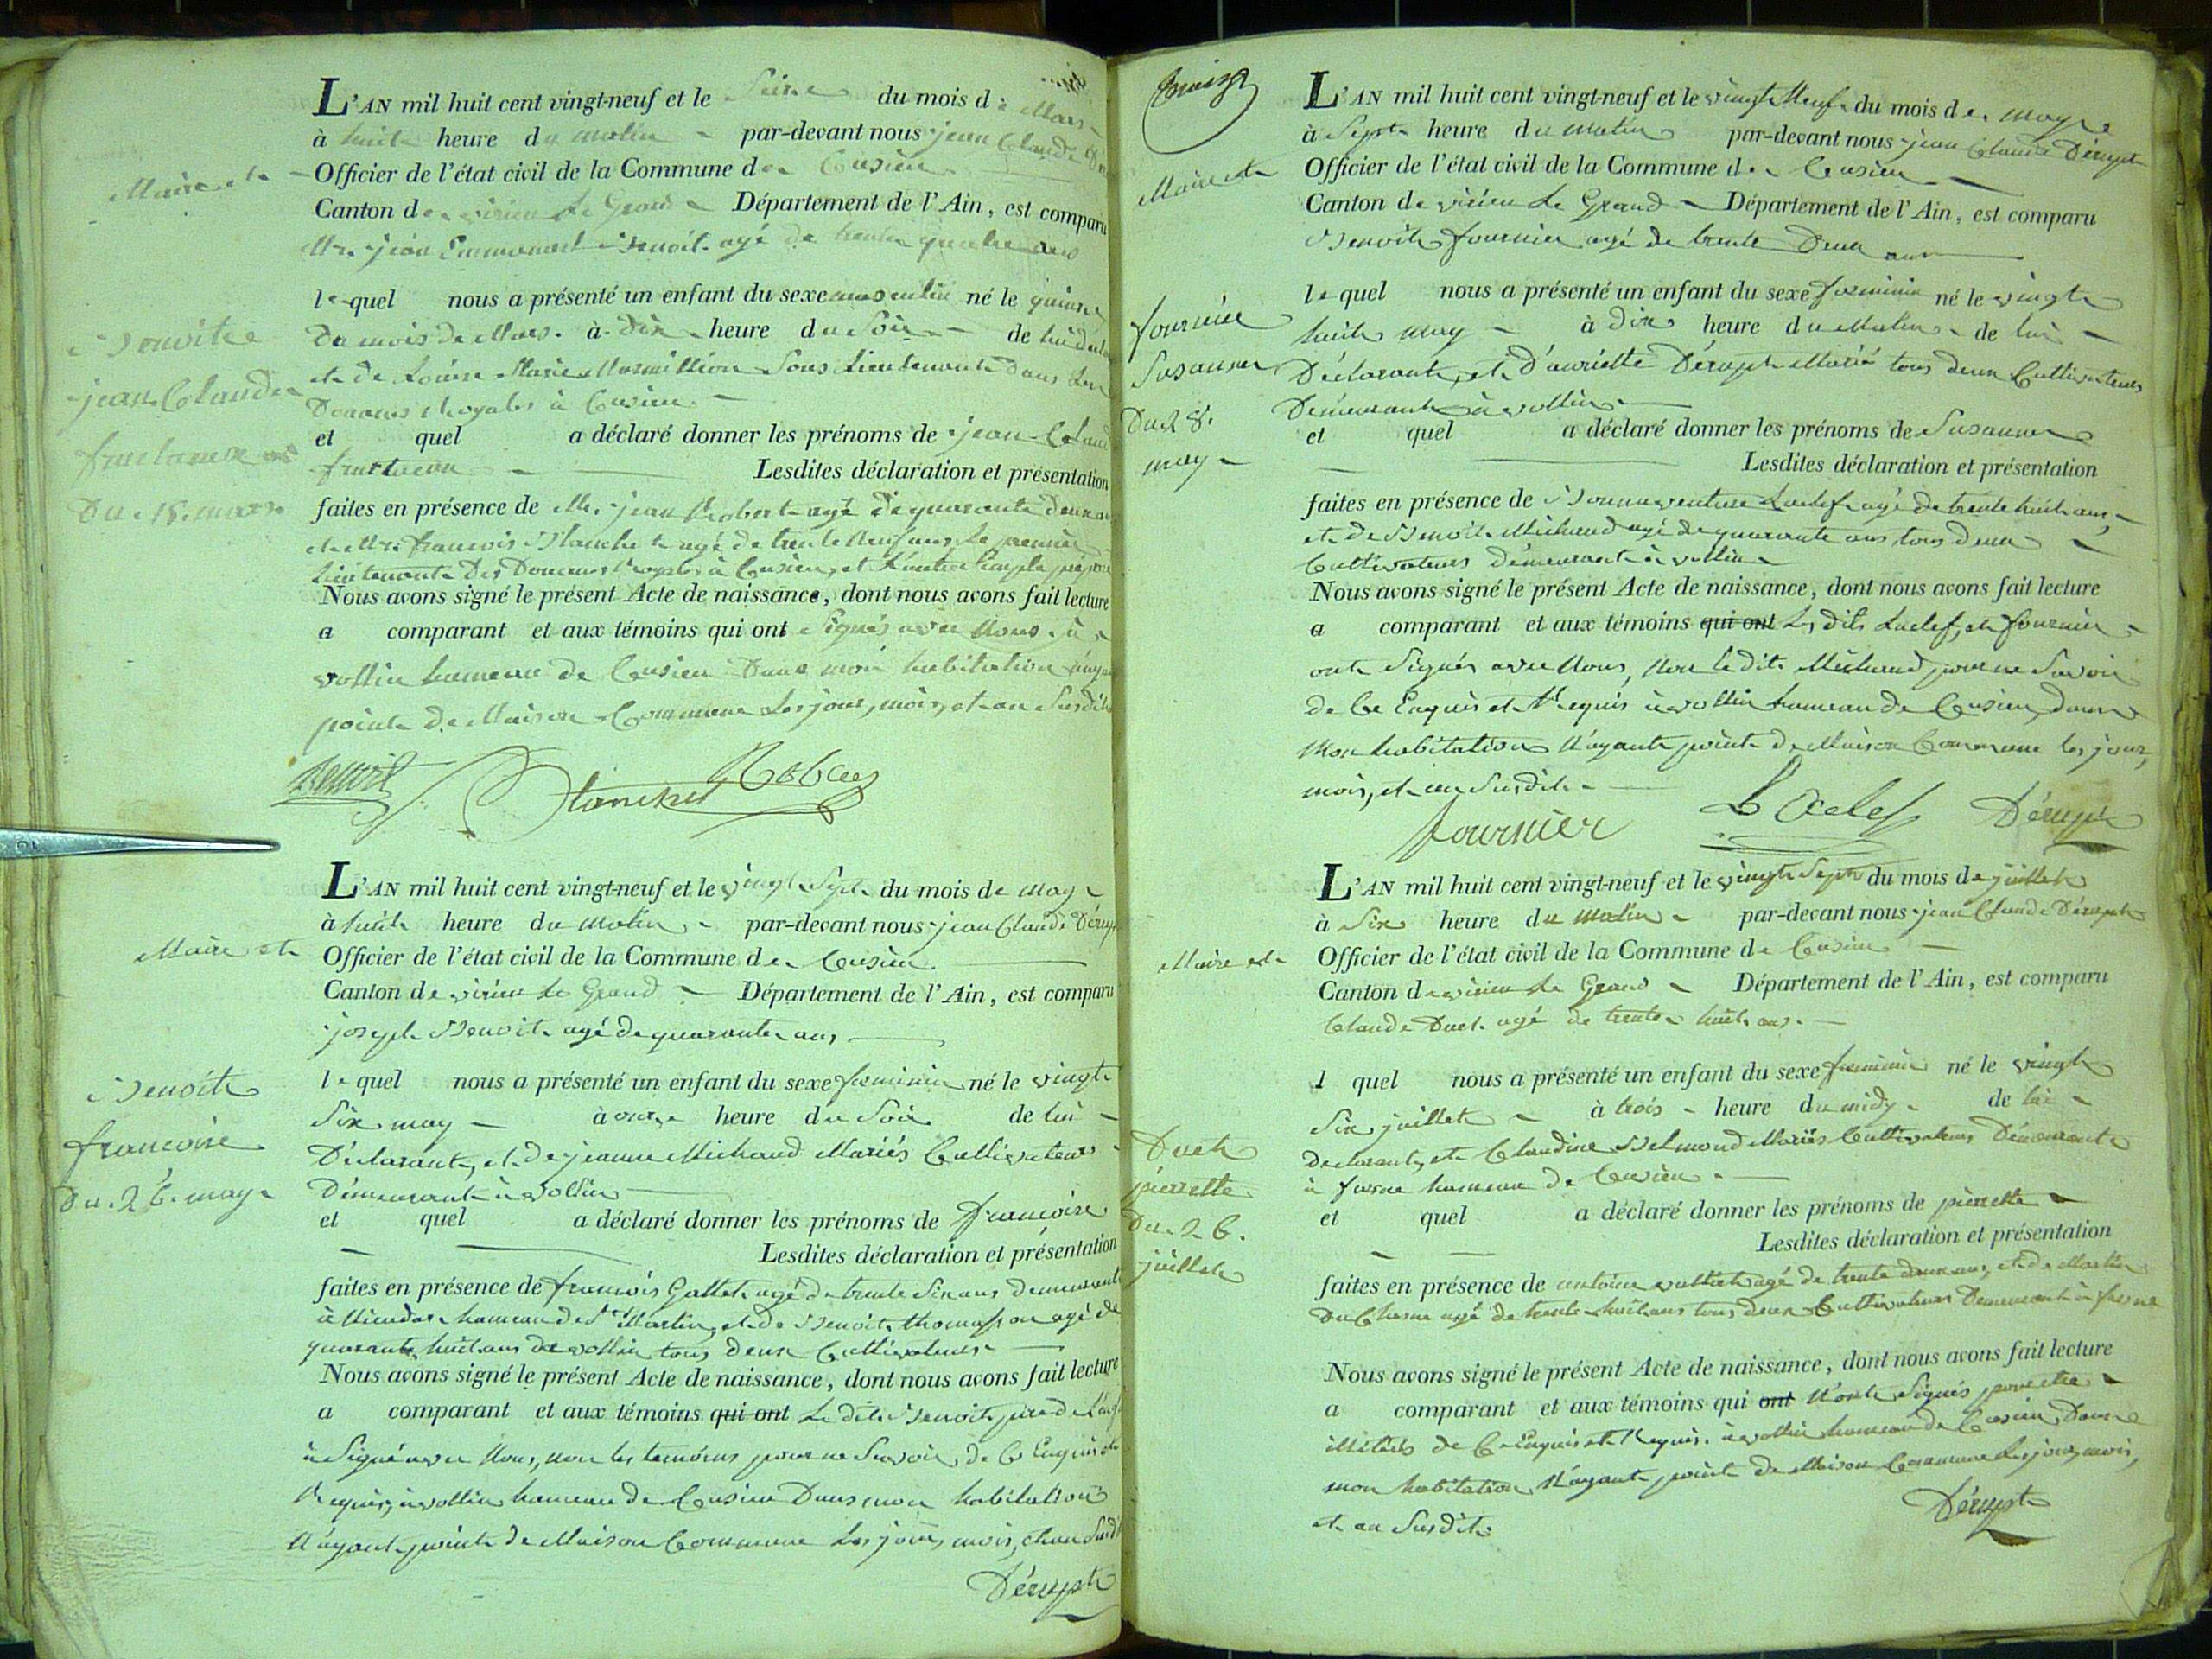 L'AN mil huit cent vingt-neuf et le Seize du mois de Mars
à huit heure du matin par-devant nous jean Claude
Maire et Officier de l'état civil de la Commune de Cusieu
Canton de virieu Le Grand Département de l'Ain, est comparu
Mr. jean Emmanuel Benoit agé de trente quatre ans
lequel nous a présenté un enfant du sexe masculin né le quinze
Du mois de Mars à Dix heure du Soir de lui
et de Louise Marie Marmillion Sous Lieutenant Dans Les
Douanes Royales à Cusieu
et quel a déclaré donner les prénoms de jean Claude
Lesdites déclaration et présentation
faites en présence de Mr. jean Robert agé de quarante deux ans
et Mr. francois Blanchet agé de trente Neuf ans, Le premier
Lieutenant Des Douanes Royales à Cusieu, et L'autre Simple
Nous avons signé le présent Acte de naissance, dont nous avons fait lecture
a comparant et aux témoins qui ont Signés avec Nous, à
vollien hameau de Cusieu Dans mon habitation N'ayant
point de Maison Commune Les jour, mois, et an Susdits
Benoit Blanchet Robert
Benoit
jean Claude
Du 15. mars
L'AN mil huit cent vingt-neuf et le vingt Sept du mois de may
à huit heure du matin par-devant nous jean Claude Dérupt
Maire et Officier de l'état civil de la Commune de Cusieu
Canton de virieu Le Grand Département de l'Ain, est comparu
joseph Benoit agé de quarante ans
lequel nous a présenté un enfant du sexe feminin né le vingt
Six may à onze heure du Soir de lui
Déclarant, et de jeanne Michaud Mariés Cultivateurs
Démeurant à vollien
et quel a déclaré donner les prénoms de francoise
Lesdites déclaration et présentation
faites en présence de francois Gallet agé de trente Six ans demeurant
à hameau de St Martin, et de Benoit thomasson agé de
quarante huit ans de vollien tous deux Cultivateurs
Nous avons signé le présent Acte de naissance, dont nous avons fait lecture
a comparant et aux témoins qui ont Le dit Benoit père de
à Signé avec Nous, non les témoins pour ne Savoir, de Ce Enquis et
Requis, à vollien hameau de Cusieu Dans mon habitation
N'ayant point de Maison Commune Les jour, mois, et an Susdits
Dérupt
Benoit
francoise
Du 26. may
L'AN mil huit cent vingt-neuf et le vingt Neuf du mois de may
à Sept heure du matin par-devant nous jean Claude Dérupt
Maire et Officier de l'état civil de la Commune de Cusieu
Canton de virieu Le Grand Département de l'Ain, est comparu
Benoit fournier agé de trente Deux ans
lequel nous a présenté un enfant du sexe feminin né le vingt
huit may à dix heure du Matin de lui
Déclarant, et D'auriette Dérupt Marié tous deux Cultivateurs
Demeurant à vollien
et quel a déclaré donner les prénoms de Susanne
Lesdites déclaration et présentation
faites en présence de Bonnaventure Laclef agé de trente huit ans,
et de Benoit Michaud agé de quarante ans tous deux
Cultivateurs Démeurant à vollien
Nous avons signé le présent Acte de naissance, dont nous avons fait lecture
a comparant et aux témoins qui ont Les dits Laclef, et fournier
ont Signés avec Nous, Non le dit Michaud pour ne Savoir
de Ce Enquis et Requis à vollien hameau de Cusieu, dans
Mon habitation N'ayant point de Maison Commune les jour,
mois, et an Susdits
fournier Laclef Dérupt
fournier
Susanne
Du 28.
may
L'AN mil huit cent vingt-neuf et le vingt Sept du mois de juillet
à Six heure du Matin par-devant nous jean Claude Dérupt
Maire et Officier de l'état civil de la Commune de Cusieu
Canton de virieu Le Grand Département de l'Ain, est comparu
Claude Duet agé de trente huit ans
l quel nous a présenté un enfant du sexe feminin né le vingt
Six juillet à trois heure du midy de lui
Declarant, et Claudine Belmond Mariés Cultivateurs Démeurant
à hameau de Cusieu
et quel a déclaré donner les prénoms de pierrette
Lesdites déclaration et présentation
faites en présence de antoine agé de trente deux ans, et de Martin
Duchesne agé de trente huit ans tous deux Cultivateurs Demeurant à
Nous avons signé le présent Acte de naissance, dont nous avons fait lecture
a comparant et aux témoins qui ont N'ont Signés pour etre
illitérés de Ce Enquis et Requis à vollien hameau de Cusieu, Dans
mon habitation N'ayant point de Maison Commune Les jour, mois,
et an Susdits
Dérupt
Duet
pierrette
Du 26.
juillet